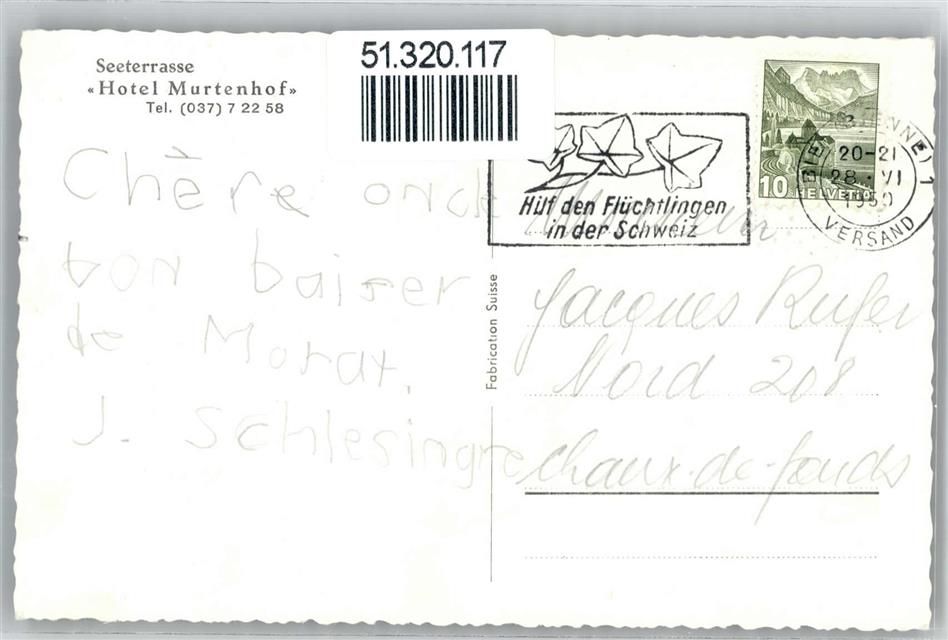 Seeterrasse
«Hotel Murtenhof»
Tel. (037) 7 22 58
51.320.117
Chère oncle
bon baiser
de Morat.
J. Schlesingre
Fabrication Suisse
Hilf den Flüchtlingen
in der Schweiz
10 HELVETIA
BIEL (BIENNE) 1
20-21
28.VI
1950
VERSAND
Monsieur
Jacques Rufer
Nord 208
chaux-de-fonds